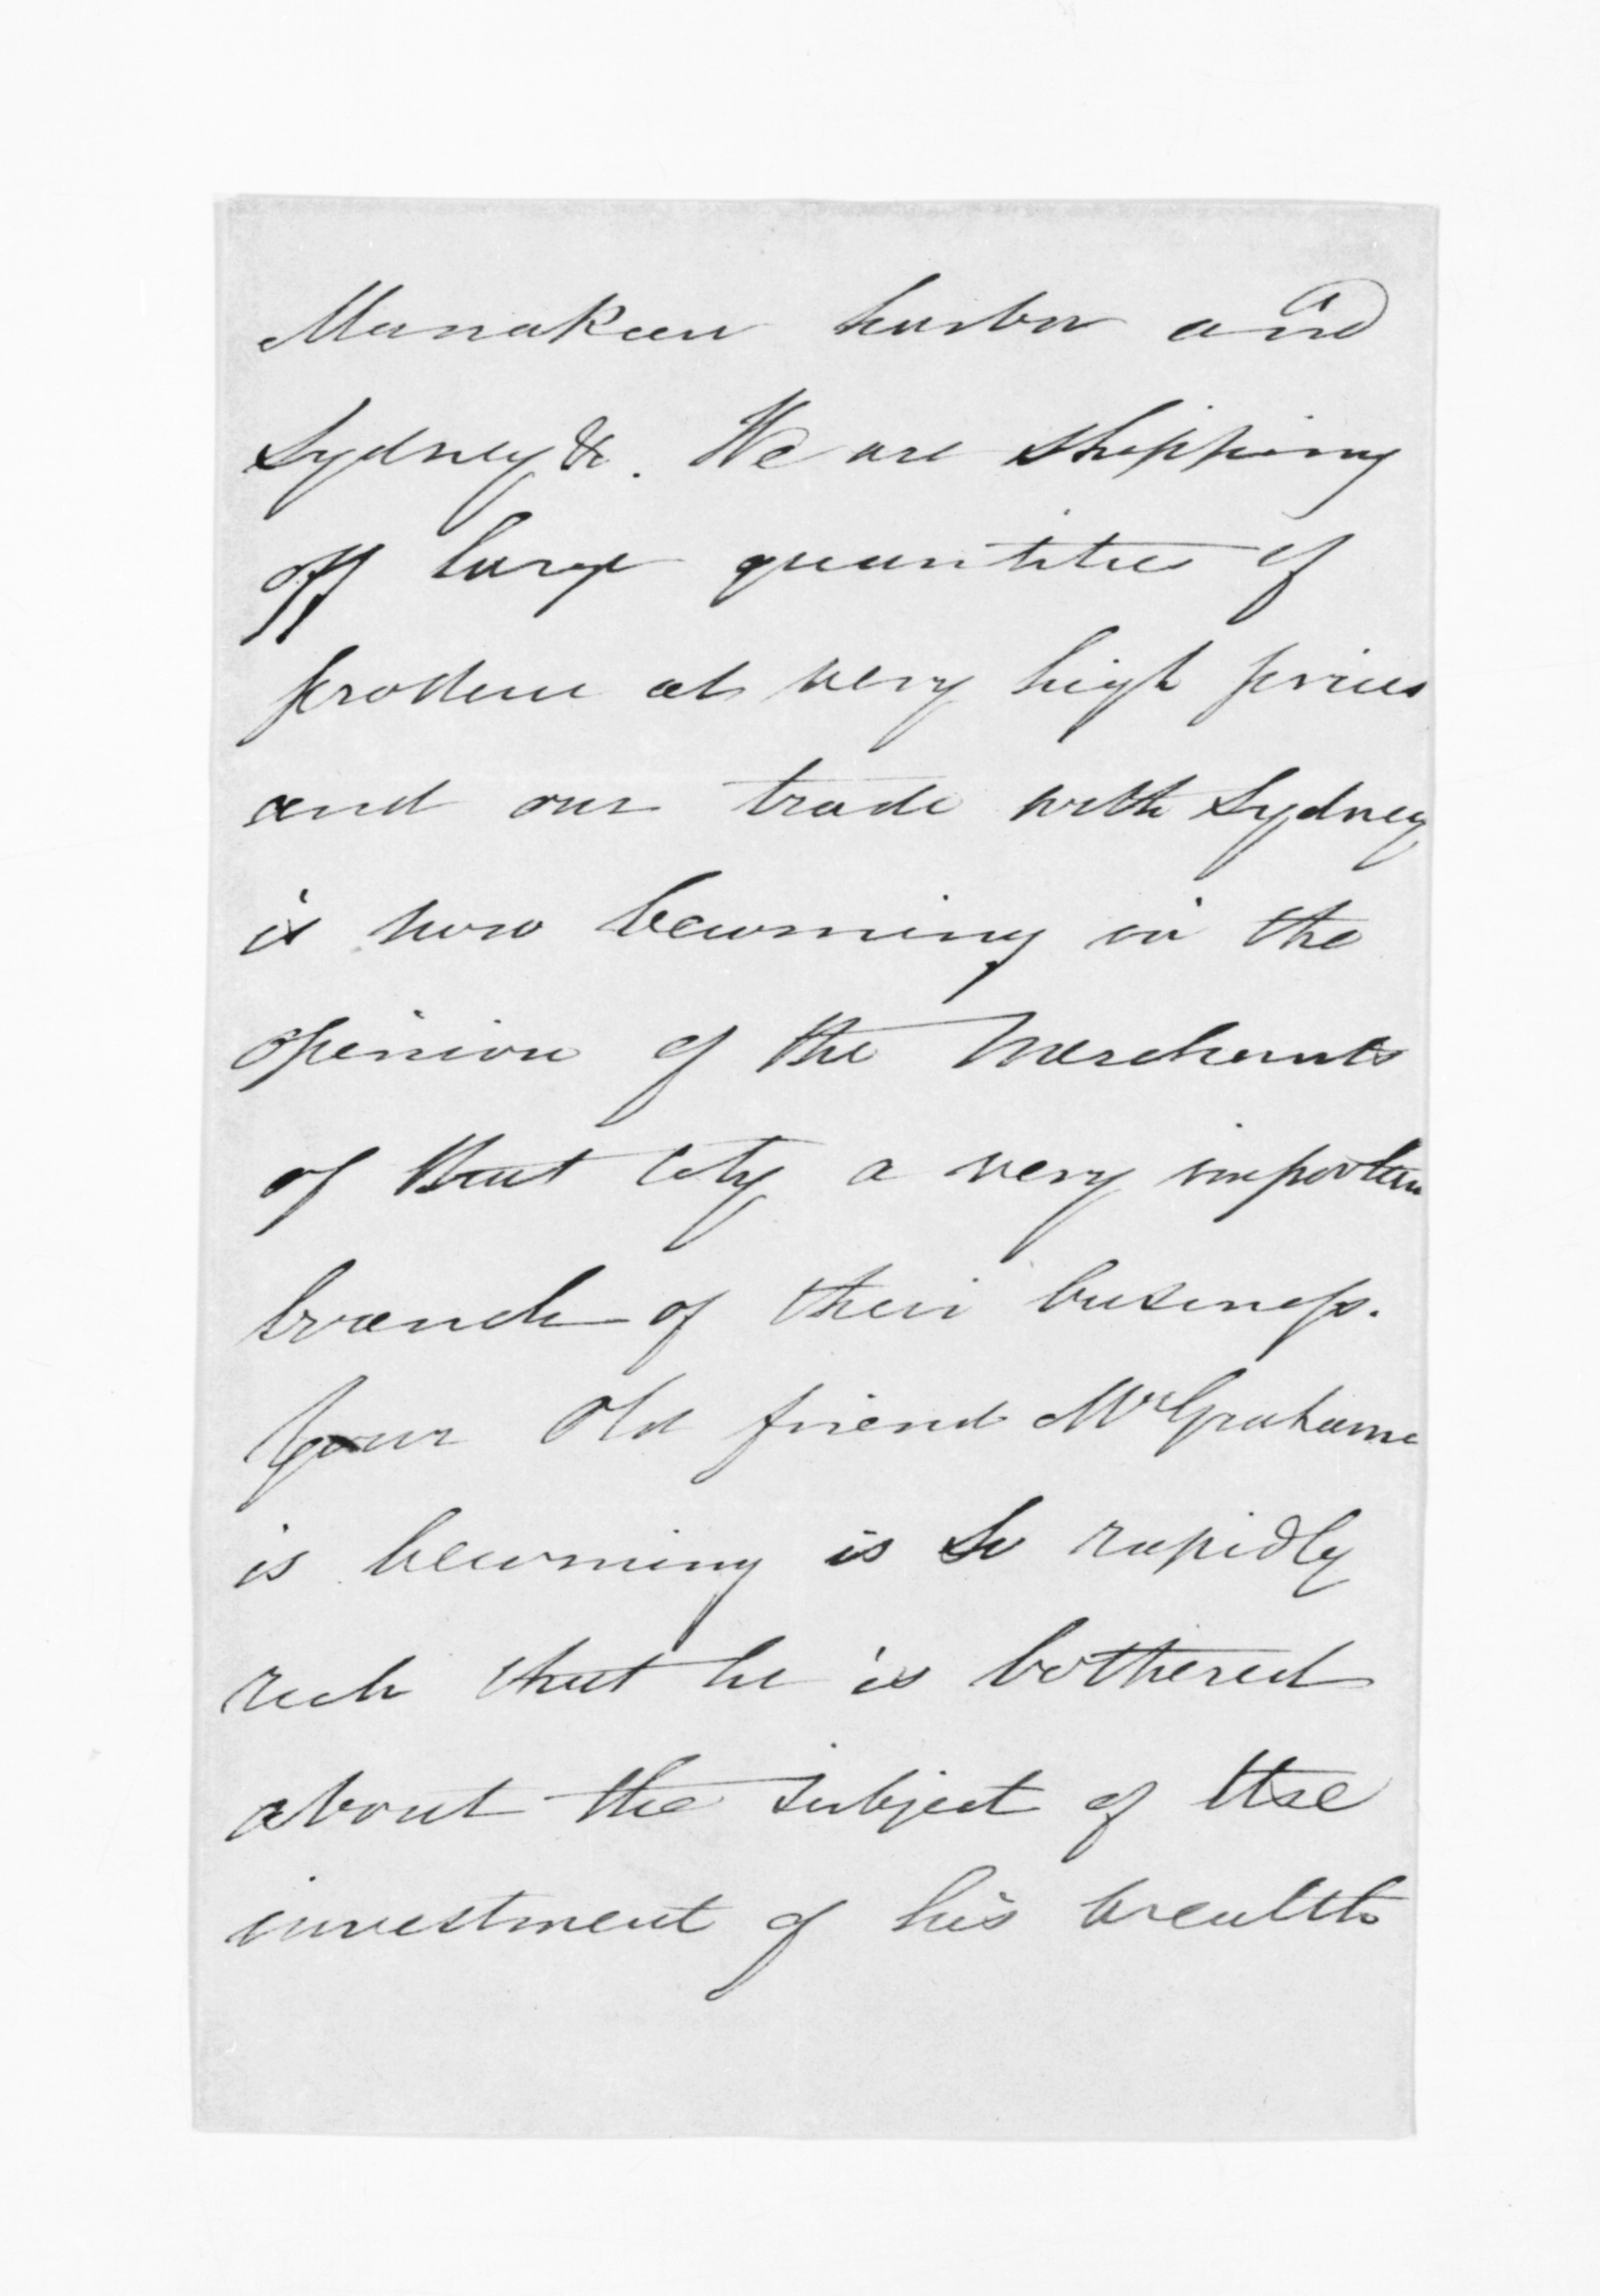 Manakau harbor and
Sydney &c. We are shipping
off large quantities of
produce at very high prices
and our trade with Sydney
is now becoming in the
opinion of the Merchants
of that city a very important
branch of their business.
Your Old friend Mr Grahame
is becoming is so rapidly
rich that he is bothered
about the subject of the
investment of his wealth